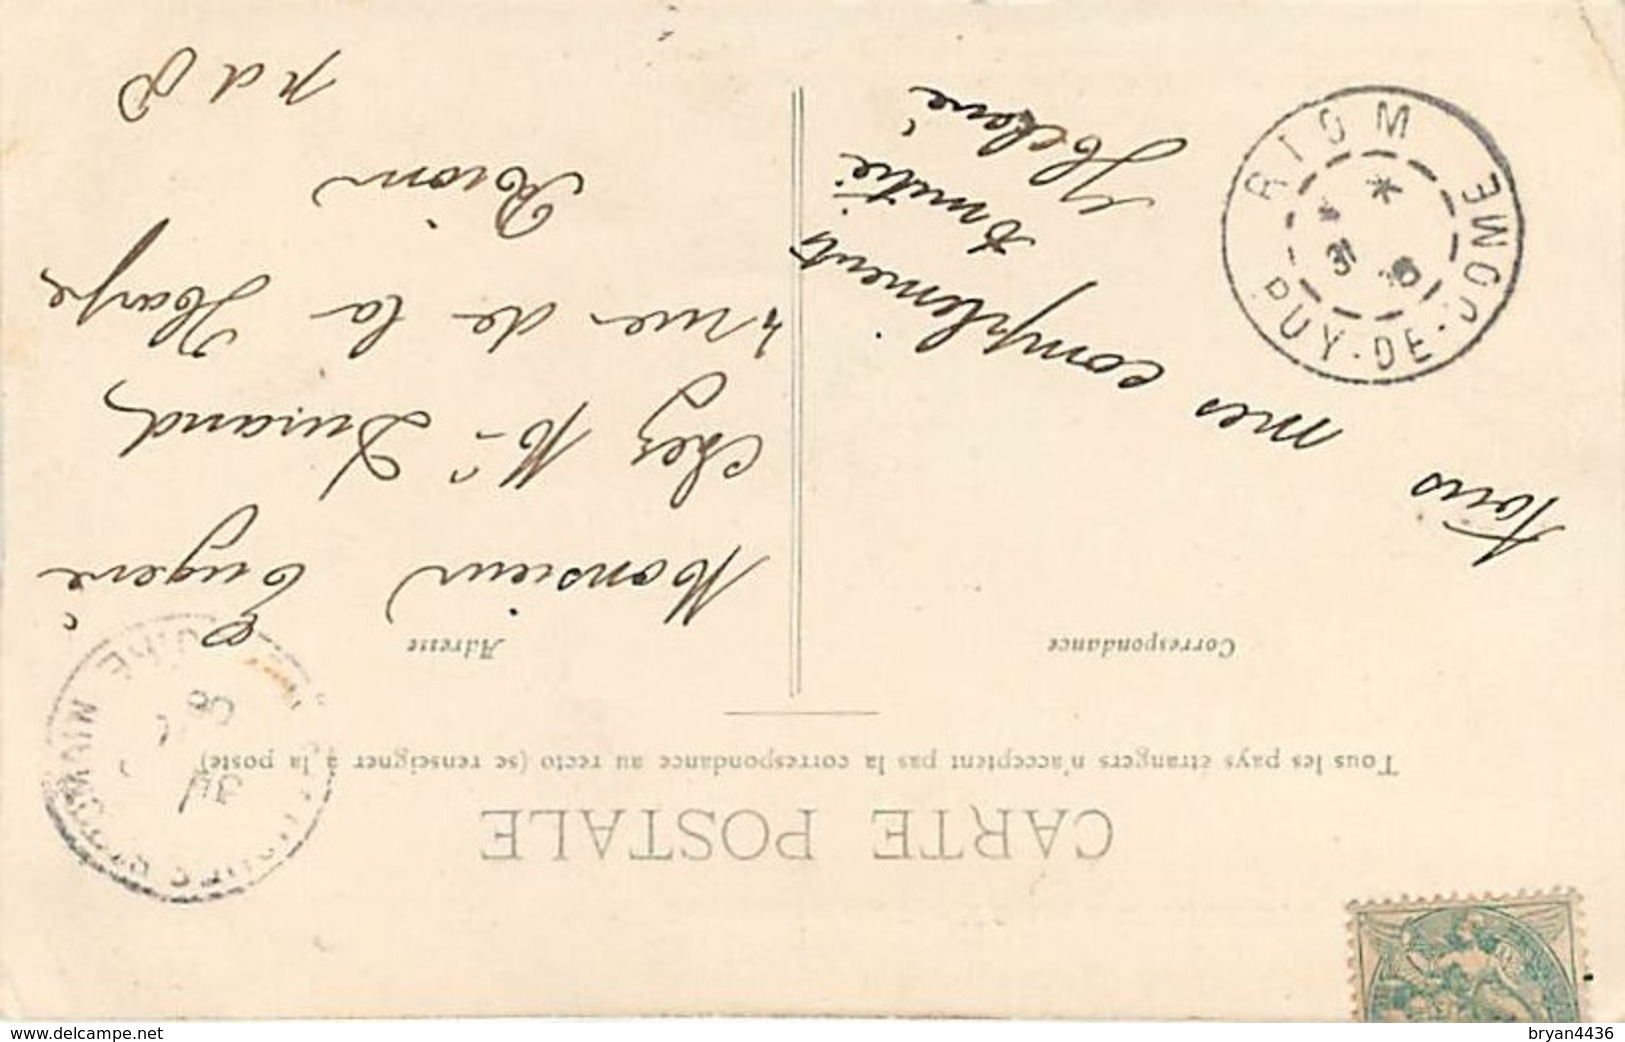 CARTE POSTALE
Tous les pays étrangers n'acceptent pas la correspondance au recto (se renseigner à la poste)
Correspondance
Tous
mes compliments
Amitié
Adresse
Monsieur Eugène
chez Mr Durand
4 rue de la Harpe
Riom
P d D
RIOM
PUY-DE-DOME
31
www.delcampe.net
bryan4436